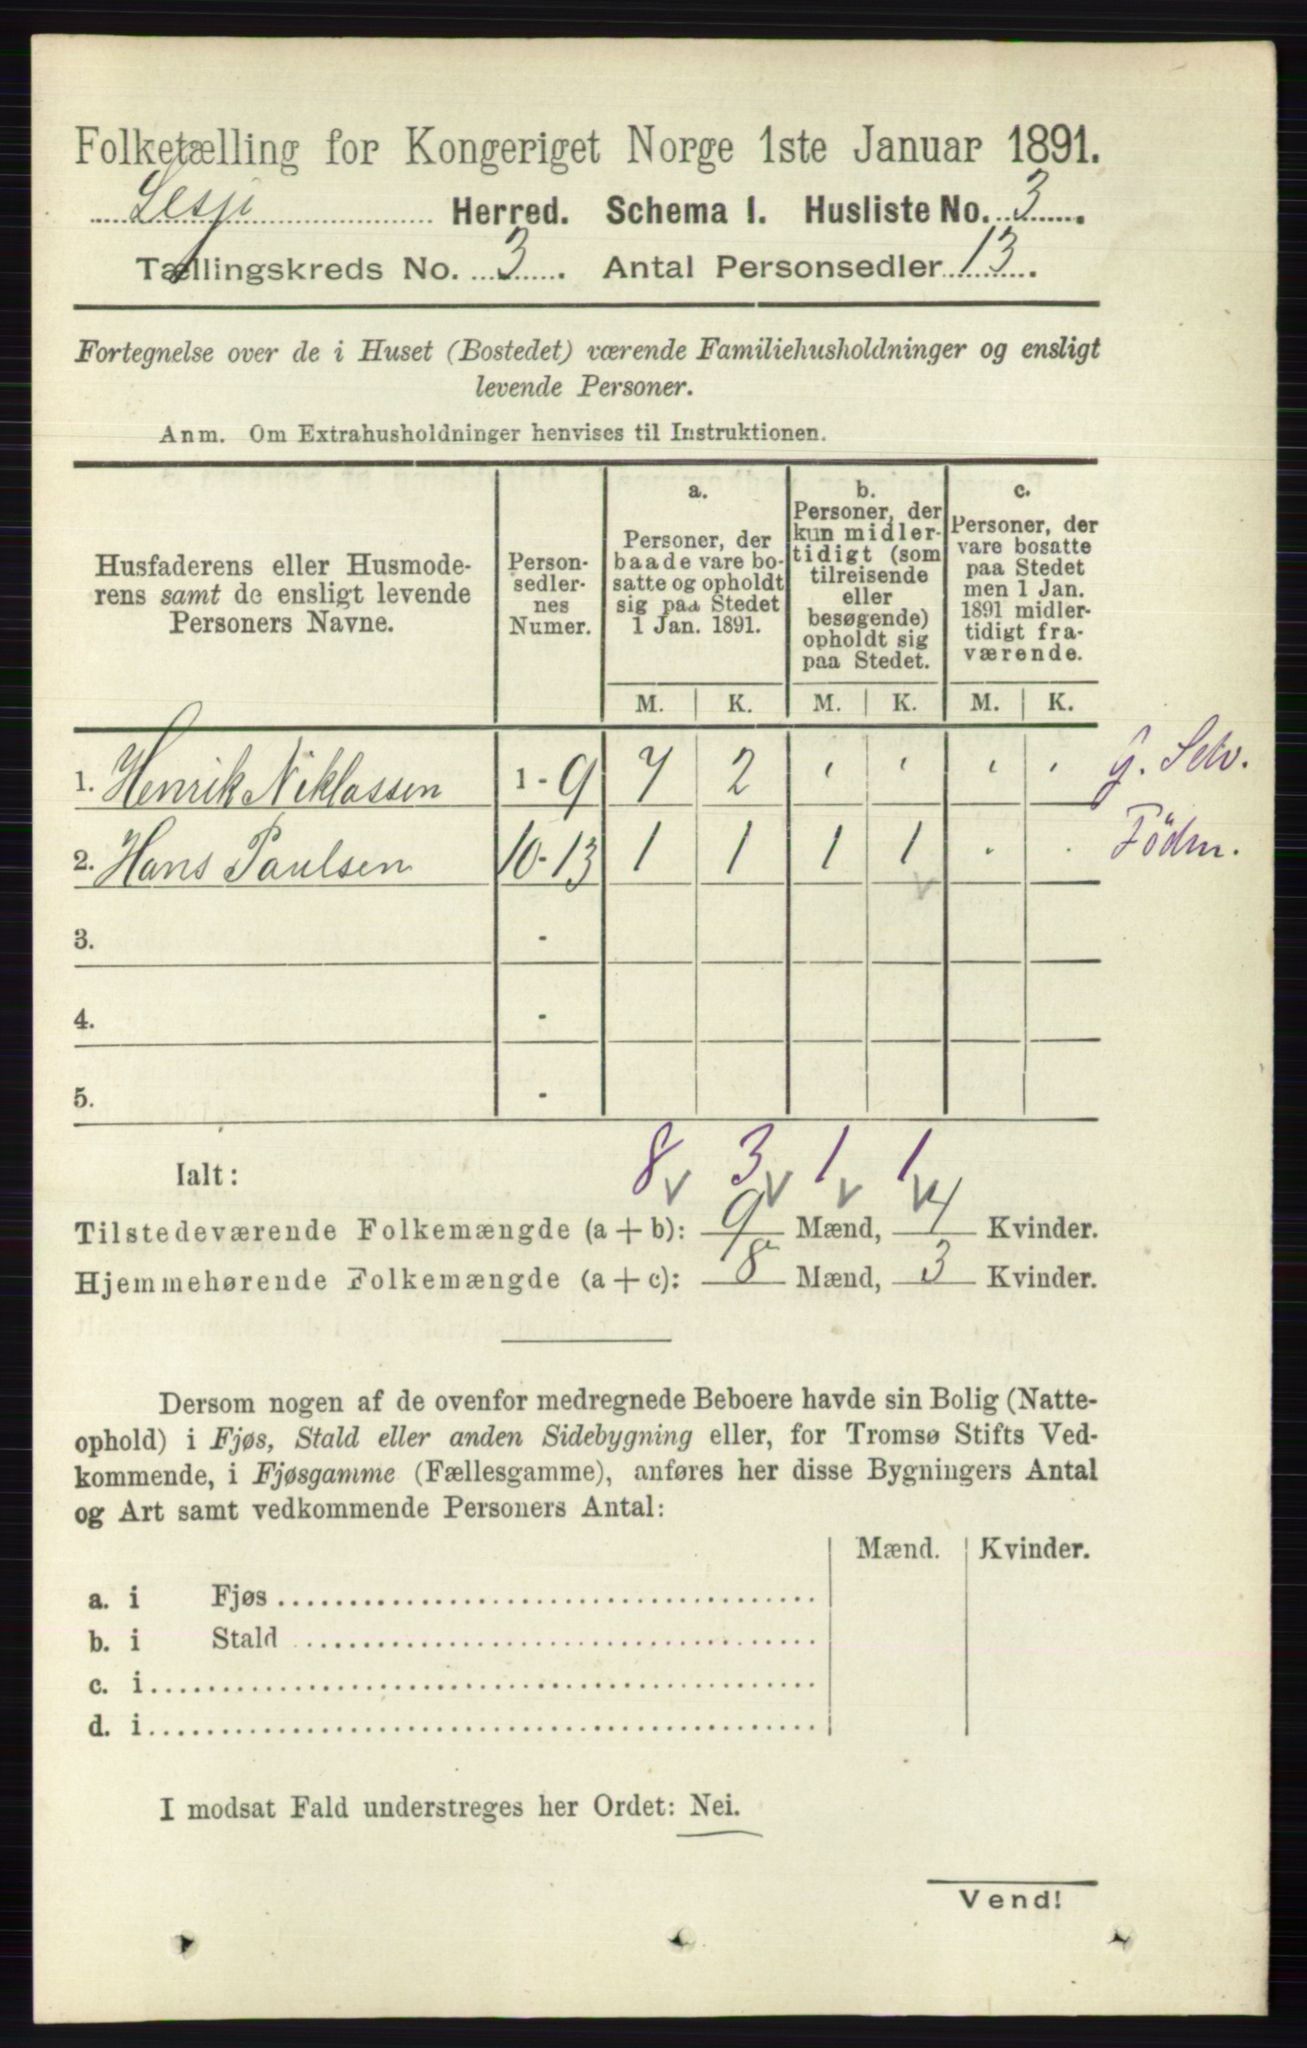 Folketælling for Kongeriget Norge 1ste Januar 1891.
Lesje Herred. Schema I. Husliste No. 3.
Tællingskreds No. 3. Antal Personsedler 13.
Fortegnelse over de i Huset (Bostedet) værende Familiehusholdninger og ensligt
levende Personer.
Anm. Om Extrahusholdninger henvises til Instruktionen.
Husfaderens eller Husmode-
rens samt de ensligt levende
Personers Navne.
Person-
sedler-
nes
Numer.
a.
Personer, der
baade vare bo-
satte og opholdt
sig paa Stedet
1 Jan. 1891.
b.
Personer, der
kun midler-
tidigt (som
tilreisende
eller
besøgende)
opholdt sig
paa Stedet.
c.
Personer, der
vare bosatte
paa Stedet
men 1 Jan.
1891 midler-
tidigt fra-
værende.
M. K. M. K. M. K.
1. Henrik Niklassen 1-9 7 2 G. Selv.
2. Hans Paulsen 10-13 1 1 1 1 Födm.
3. -
4. -
5. -
Ialt: 8 3 1 1
Tilstedeværende Folkemængde (a + b): 9 Mænd, 4 Kvinder.
Hjemmehørende Folkemængde (a + c): 8 Mænd, 3 Kvinder.
Dersom nogen af de ovenfor medregnede Beboere havde sin Bolig (Natte-
ophold) i Fjøs, Stald eller anden Sidebygning eller, for Tromsø Stifts Ved-
kommende, i Fjøsgamme (Fællesgamme), anføres her disse Bygningers Antal
og Art samt vedkommende Personers Antal:
Mænd. Kvinder.
a. i Fjøs
b. i Stald
c. i
d. i
I modsat Fald understreges her Ordet: Nei.
Vend!